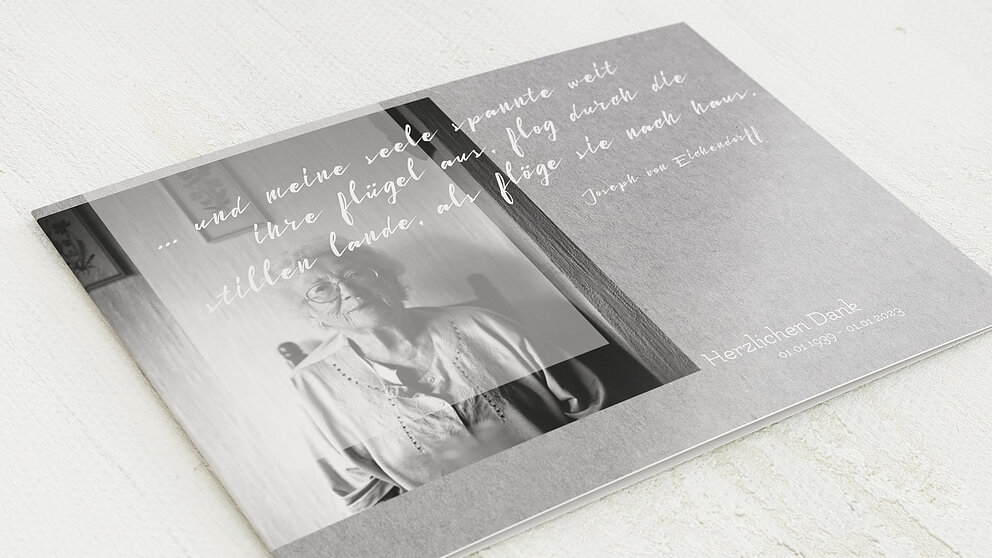 ... und meine seele spannte weit
ihre flügel aus, flog durch die
stillen lande, als flöge sie nach haus.
Joseph von Eichendorff
Herzlichen Dank
01.01.1939 - 01.01.2023